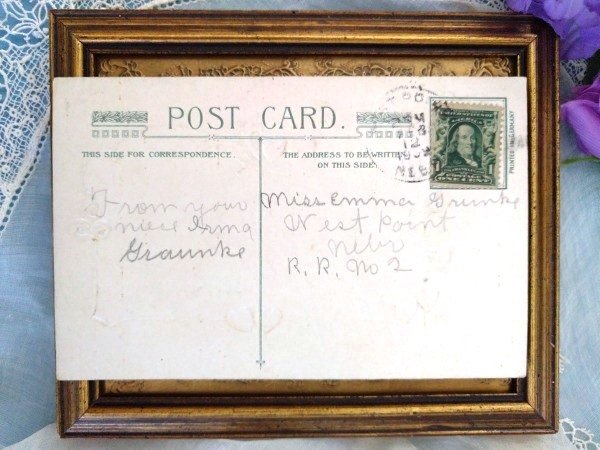 POST CARD.
THIS SIDE FOR CORRESPONDENCE.
THE ADDRESS TO BE WRITTEN
ON THIS SIDE.
PRINTED IN GERMANY
From your
niece Irma
Graunke
Miss Emma Grunke
West Point
Nebr
R. R. No 2
NEB